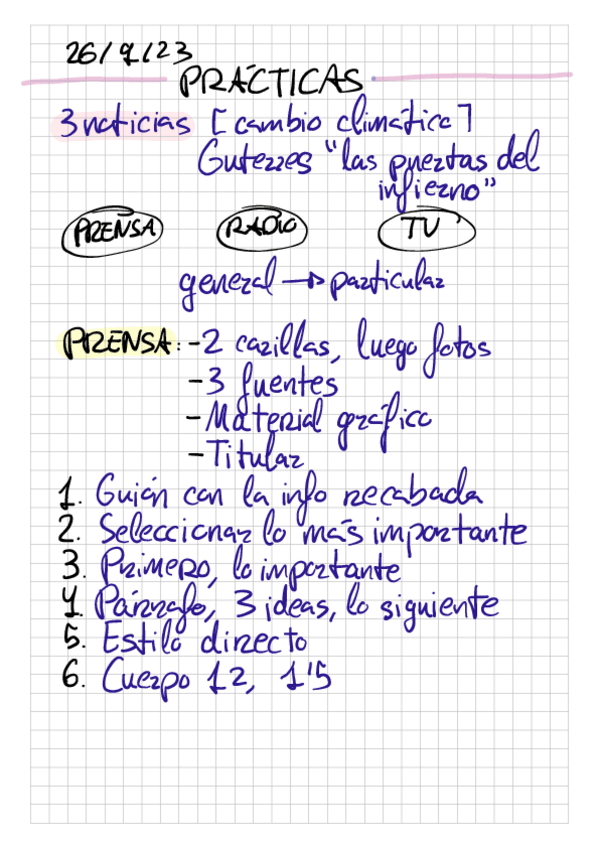 26/9/23
PRÁCTICAS
3 noticias [cambio climático]
Guterres "las puertas del
infierno"
PRENSA RADIO TV
general → particular
PRENSA: - 2 carillas, luego fotos
- 3 fuentes
- Material gráfico
- Titular
1. Guión con la info recabada
2. Seleccionar lo más importante
3. Primero, lo importante
4. Párrafo, 3 ideas, lo siguiente
5. Estilo directo
6. Cuerpo 12, 1'5